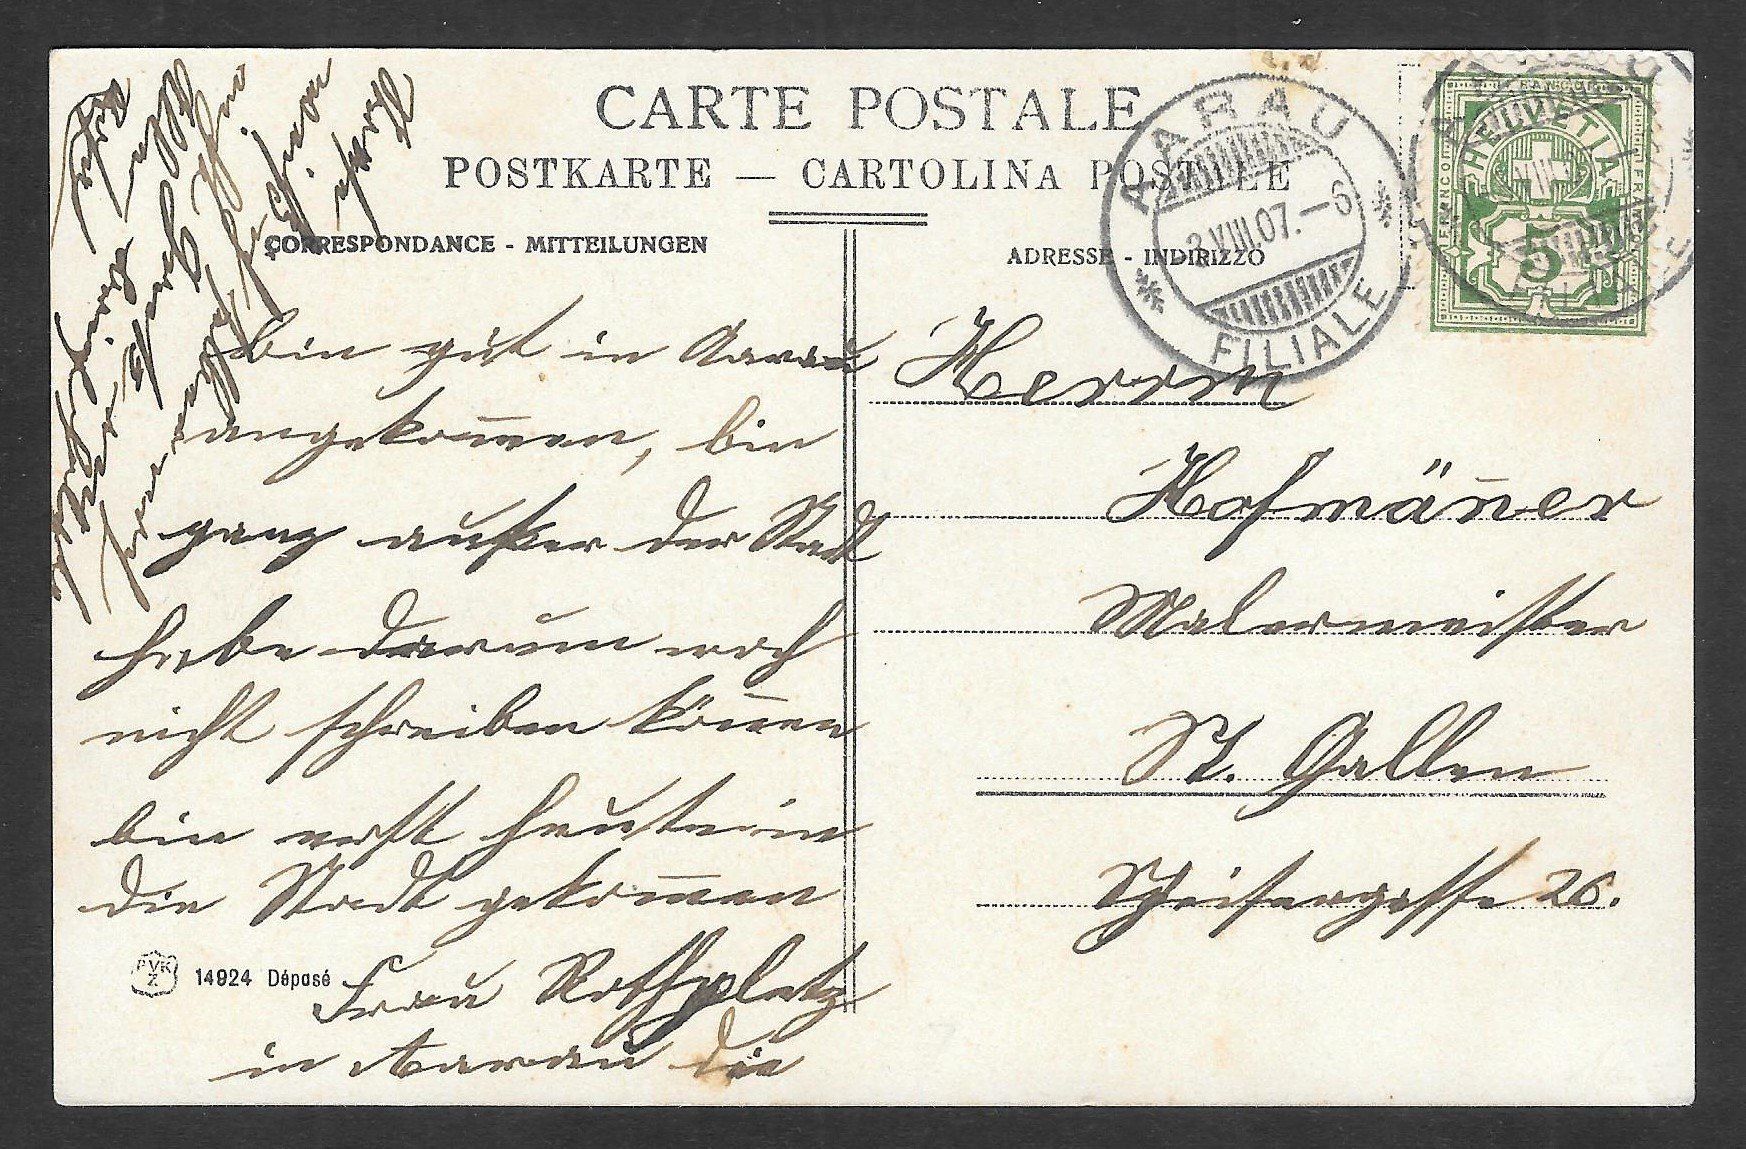 CARTE POSTALE
POSTKARTE — CARTOLINA POSTALE
CORRESPONDANCE - MITTEILUNGEN
ADRESSE - INDIRIZZO
AARAU
3.VIII.07.-6
FILIALE
FRANCO
HELVETIA
FRANCO
5
bin gut in Aarau
angekom̄en, bin
ganz außer der Stadt
habe darum noch
nicht schreiben kön̄en
bin erst heute in
die Stadt gekom̄en
Frau Rothpletz
in Aarau die
Herrn
Hofmän̄er
Malermeister
St. Gallen
Speisergasse 26.
PVK
Z
14924 Déposé